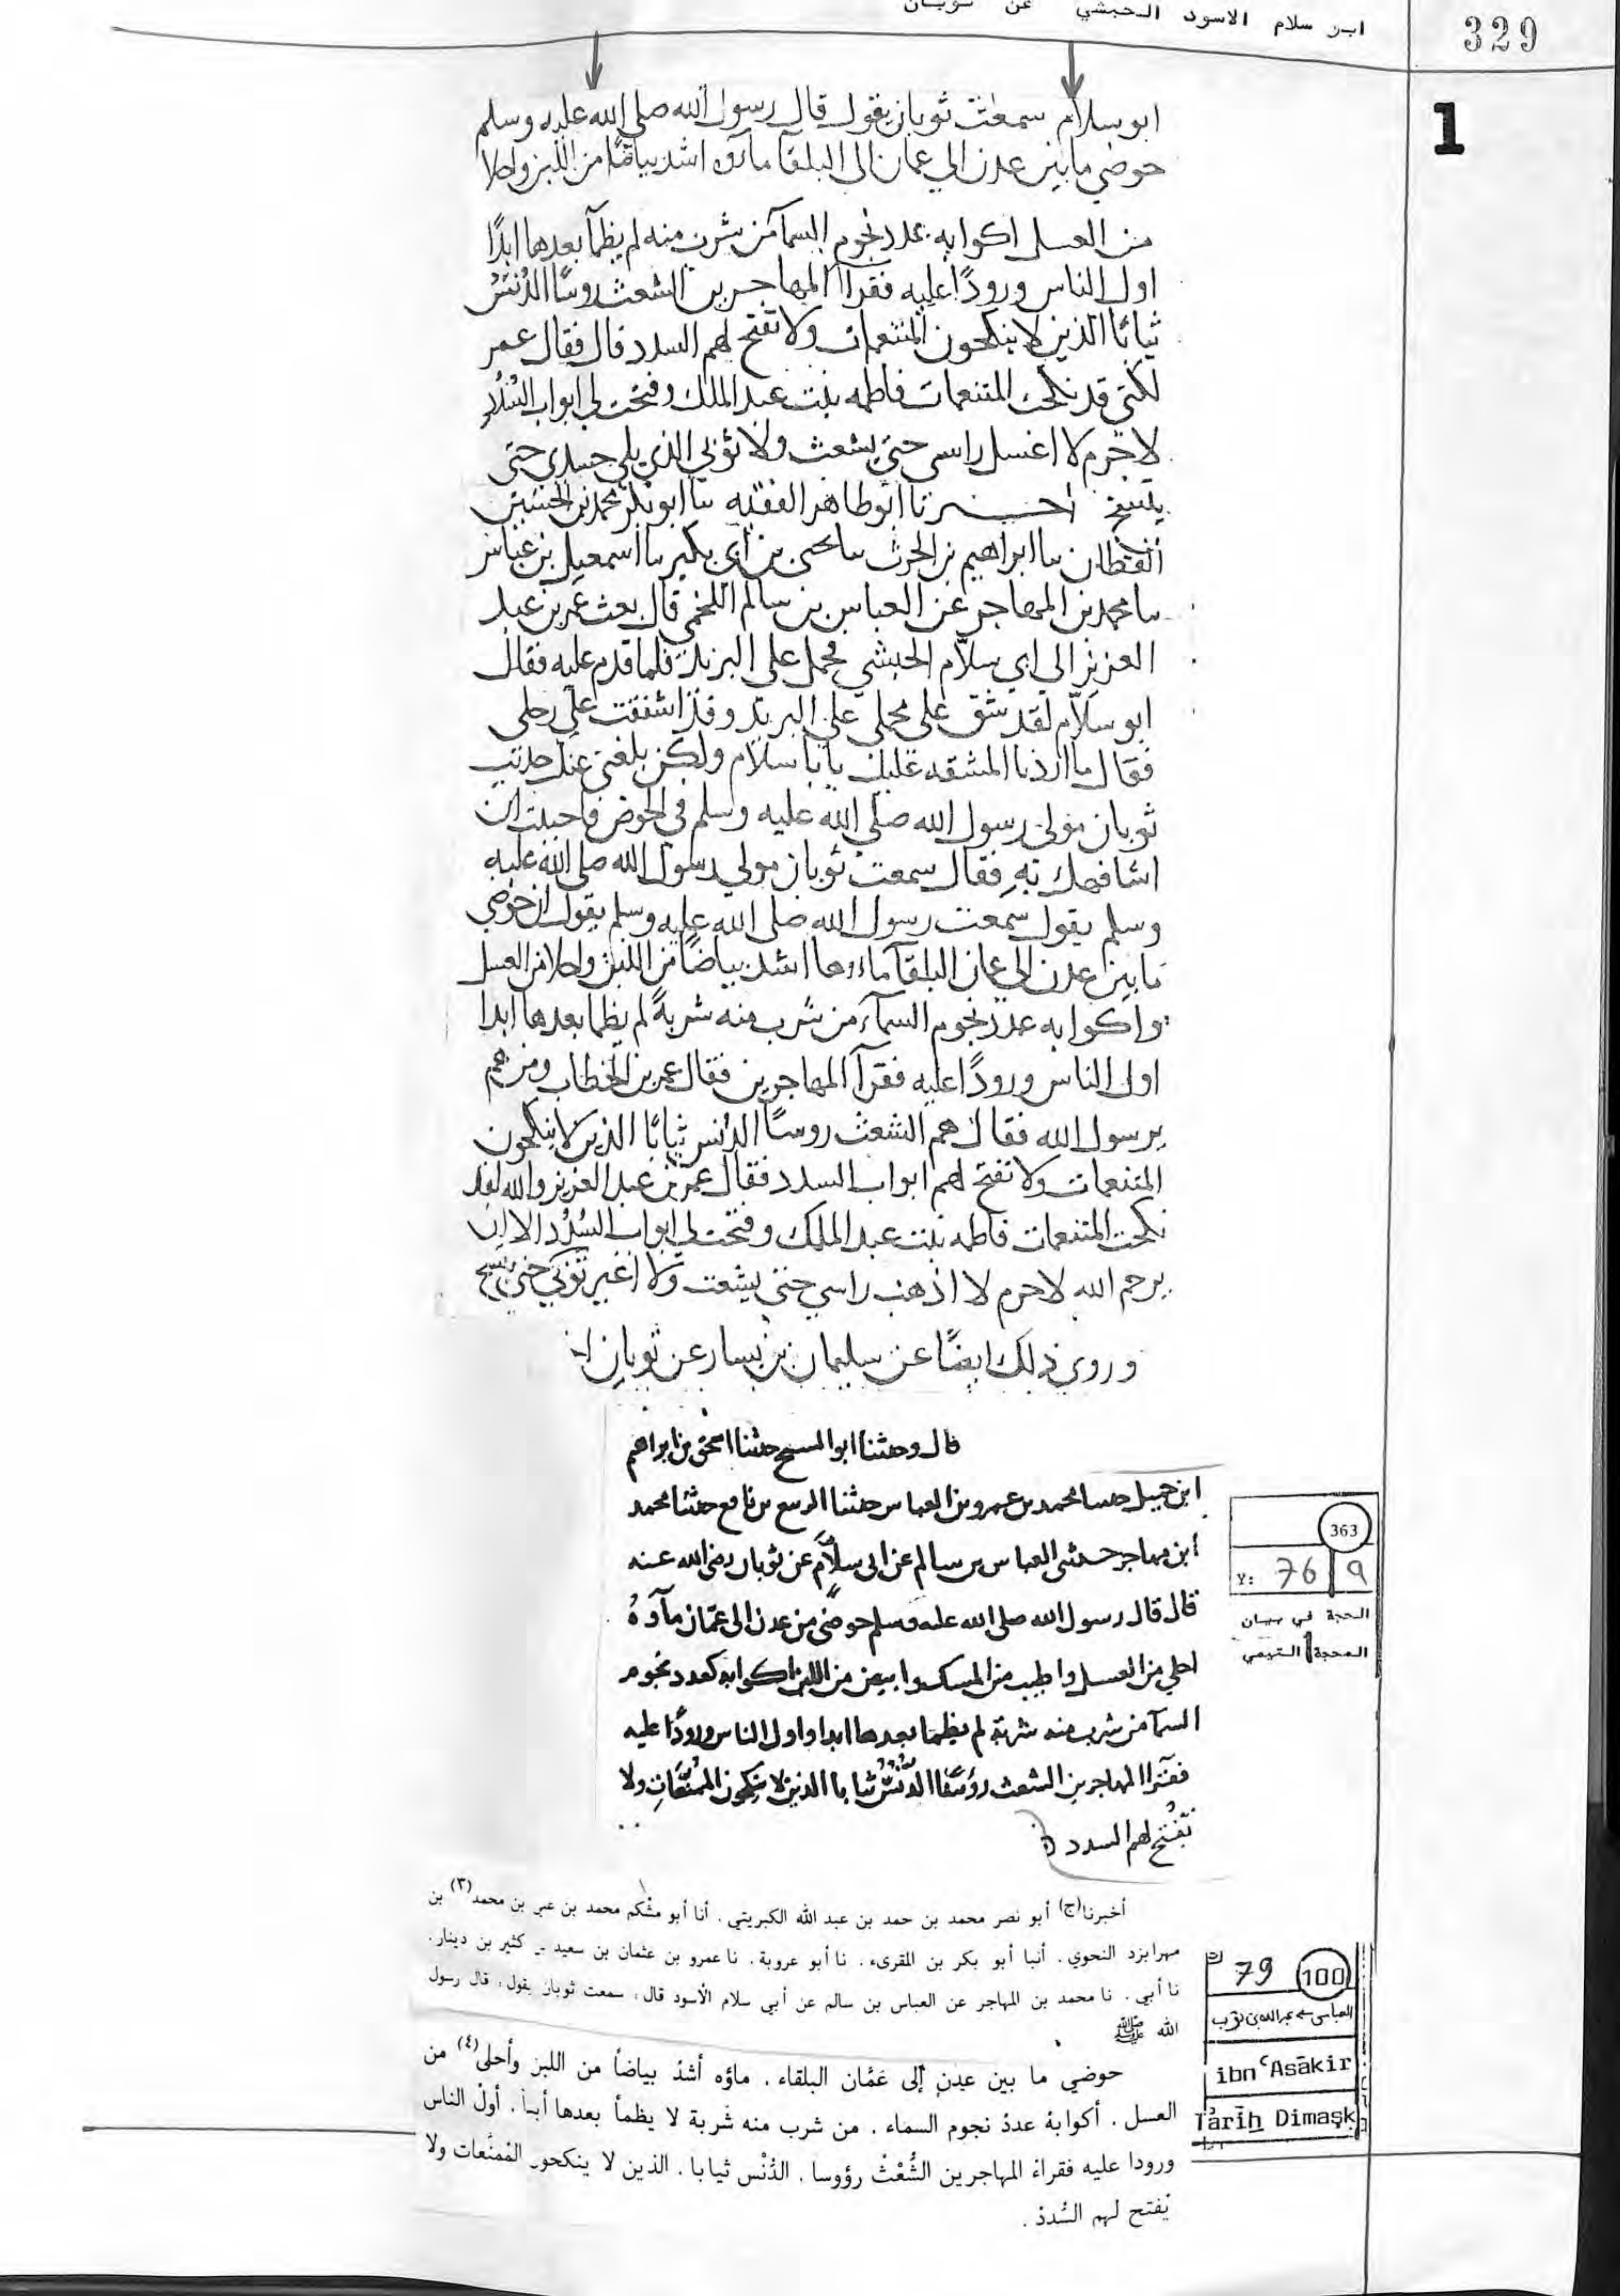 ابن سلام الاسود الحبشي عن ثوبان
329
1
ابو سلام سمعت ثوبان يقول قال رسول الله صلى الله عليه وسلم
حوضي ما بين عدن الي عمان الى البلقا مآؤه اشد بياضًا من اللبن واحلا
من العسل اكوابه عدد نجوم السمآ من شرب منه لم يظمآ بعدها ابدًا
اول الناس ورودًا عليه فقرآ المهاجرين الشعث روسًا الدُنسُ
ثيابًا الذين لا ينكحون المتنعمات ولا تفتح لهم السدد قال فقال عمر
لكني قد نكحت المتنعمات فاطمه بنت عبد الملك وفتحت لي ابواب السُدد
لا جرم لا اغسل راسي حتى يشعث ولا ثوبي الذي يلي جسدي حتى
يتسخ اخبرنا ابو طاهر الفقيه سا ابو بكر محمد بن الحسين
القطان سا ابراهيم بن الحرث سا يحيى بن ابي بكير سا اسمعيل بن عياش
سا محمد بن المهاجر عن العباس بن سالم اللخمي قال بعث عمر بن عبد
العزيز الي ابي سلاّم الحبشي فحمل على البريد فلما قدم عليه فقال
ابو سلاّم لقد شق على محملي علي البريد وقد اشفقت علي رحلى
فقال ما اردنا المشقه عليك يابا سلام ولكن بلغني عنك حديث
ثوبان مولى رسول الله صلى الله عليه وسلم في الحوض فاحببت ان
اشافهك به فقال سمعت ثوبان مولي رسول الله صلى الله عليه
وسلم يقول سمعت رسول الله صلى الله عليه وسلم يقول ان حوضي
ما بين عدن الي عمان البلقآ ماءها اشد بياضًا من اللبن واحلا من العسل
واكوابه عدد نجوم السمآء من شرب منه شربةً لم يظما بعدها ابدا
اول الناس ورودًا عليه فقرآ المهاجرين فقال عمر بن الخطاب ومن هم
يرسول الله فقال هم الشعث روسًا الدنس ثيابًا الذين لا ينكحون
المتنعمات ولا تفتح لهم ابواب السدد فقال عمر بن عبد العزيز والله لقد
نكحت المتنعمات فاطمه بنت عبد الملك وفتحت لي ابواب السُدُد الا ان
يرحم الله لا جرم لا ادهن راسي حتى يشعث ولا اغير ثوبي حتى يتسخ
وروى ذلك ايضًا عن سليمان بن يسار عن ثوبان
قال وحدثنا ابو المسيح حدثنا اسحق بن ابراهيم
ابن جميل حدثنا محمد بن عمرو بن العباس حدثنا الربيع بن نافع حدثنا محمد
ابن مهاجر حدثني العباس بن سالم عن ابي سلاّم عن ثوبان رضى الله عنه
قال قال رسول الله صلى الله عليه وسلم حوضي من عدن الى عمّان مآؤهُ
احلي من العسل واطيب من المسك وابيض من اللبن اكوابه كعدد نجوم
السمآ من شرب منه شربة لم يظما بعدها ابدا واول الناس ورودًا عليه
فقرآ المهاجرين الشعث رؤسًا الدُّنسُ ثيابا الذين لا ينكحون المُمنّعَاتِ ولا
تُفتح لهم السدد
363
Y: 76 | 9
الحجة في بيان
المحجة التيمي
أخبرنا(ج) أبو نصر محمد بن حمد بن عبد الله الكبريتي. أنا أبو مسلم محمد بن علي بن محمد(٣) بن
مهرابزد النحوي. أنبا أبو بكر بن المقرىء. نا أبو عروبة. نا عمرو بن عثمان بن سعيد بن كثير بن دينار.
نا أبي. نا محمد بن المهاجر عن العباس بن سالم عن أبي سلام الأسود قال، سمعت ثوبان يقول، قال رسول
الله ﷺ
حوضي ما بين عدن إلى عَمَّان البلقاء. ماؤه أشدّ بياضاً من اللبن وأحلى(٤) من
العسل. أكوابهُ عددُ نجوم السماء. من شرب منه شَربة لا يظمأ بعدها أبداً. أولُ الناس
ورودا عليه فقراءُ المهاجرين الشُّعْثُ رؤوسا. الدُّنْس ثيابا. الذين لا ينكحون المُمنَّعات ولا
يُفتح لهم السُّدد.
79 100
العباس ← عبد الله بن ثوب
ibn ʿAsākir
Tārīḫ Dimaşḳ